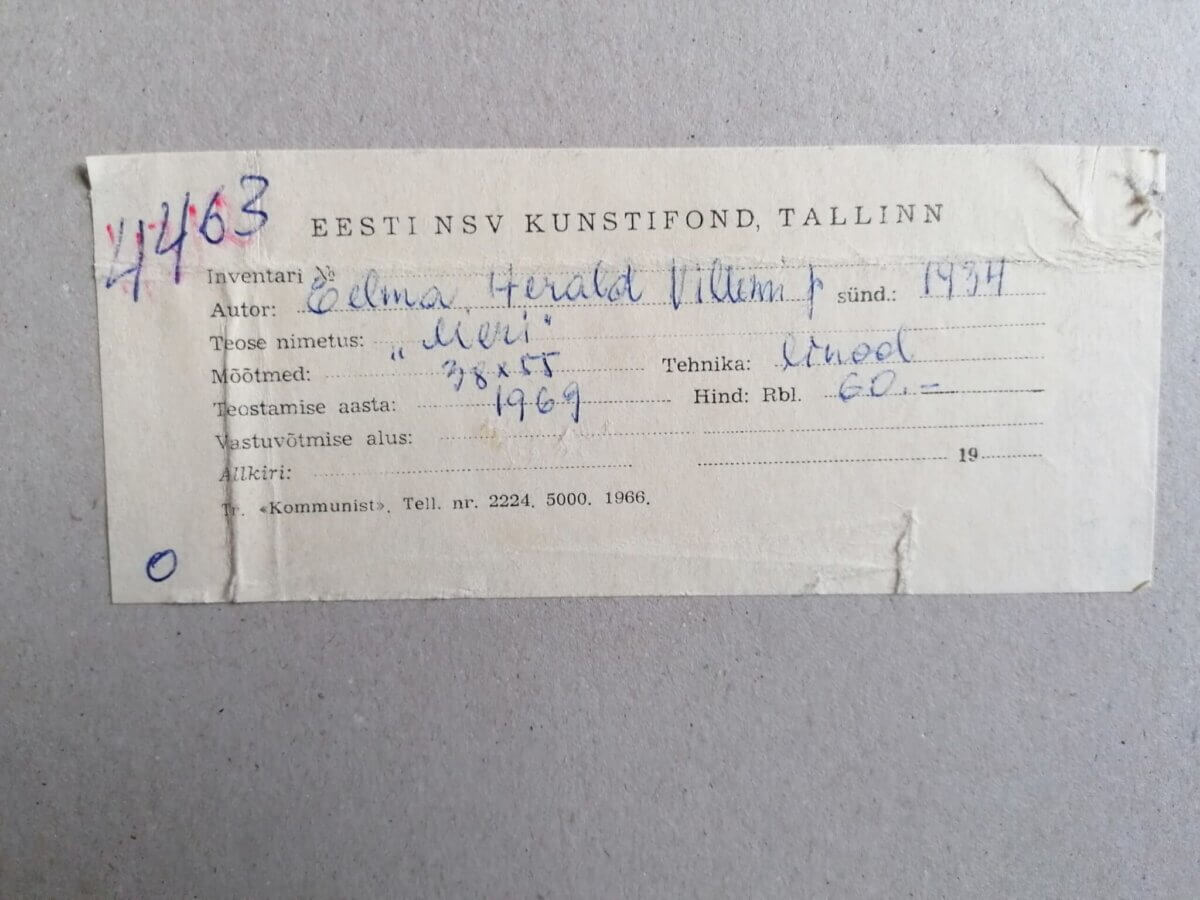 4463
EESTI NSV KUNSTIFOND, TALLINN
Inventari №
Autor: Eelma, Herald Villemi p sünd.: 1934
Teose nimetus: „Meri"
Mõõtmed: 38 x 55 Tehnika: linool
Teostamise aasta: 1969 Hind: Rbl. 60.=
Vastuvõtmise alus:
Allkiri: 19
Tr. «Kommunist». Tell. nr. 2224. 5000. 1966.
0